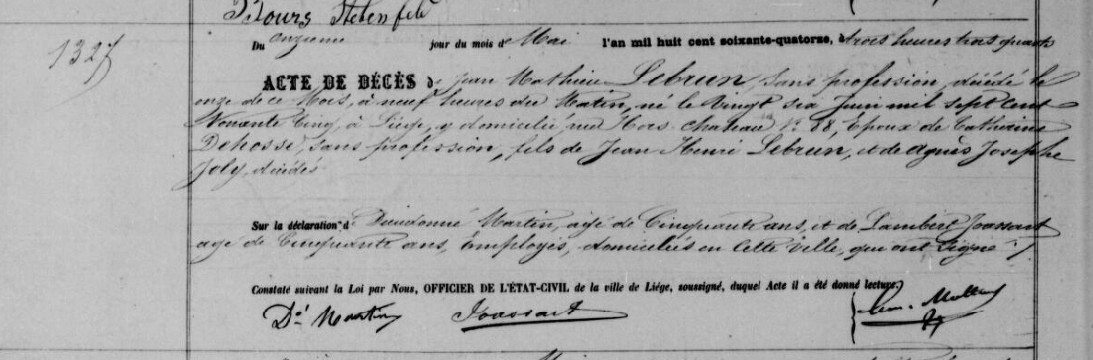 1327
Du onzieme jour du mois de Mai l'an mil huit cent soixante-quatorze, à trois heures trois quarts
ACTE DE DÉCÈS de Jean Mathieu Lebrun, sans profession, décédé le
onze de ce Mois, à neuf heures du Matin, né le Vingt six Juin mil sept Cent
Nonante Cinq, à Liége, y domicilié rue Hors-Chateau N° 88, Epoux de Catherine
Dehosse, sans profession, fils de Jean Henri Lebrun, et de Agnès Josephe
Joly, décédés
Sur la déclaration de Dieudonné Martin, agé de Cinquante ans, et de Lambert Joassart
agé de Cinquante ans, Employés, domiciliés en Cette Ville, qui ont signé
Constaté suivant la Loi par Nous, OFFICIER DE L'ÉTAT-CIVIL de la ville de Liége, soussigné, duquel Acte il a été donné lecture.
Dé Martin Joassart